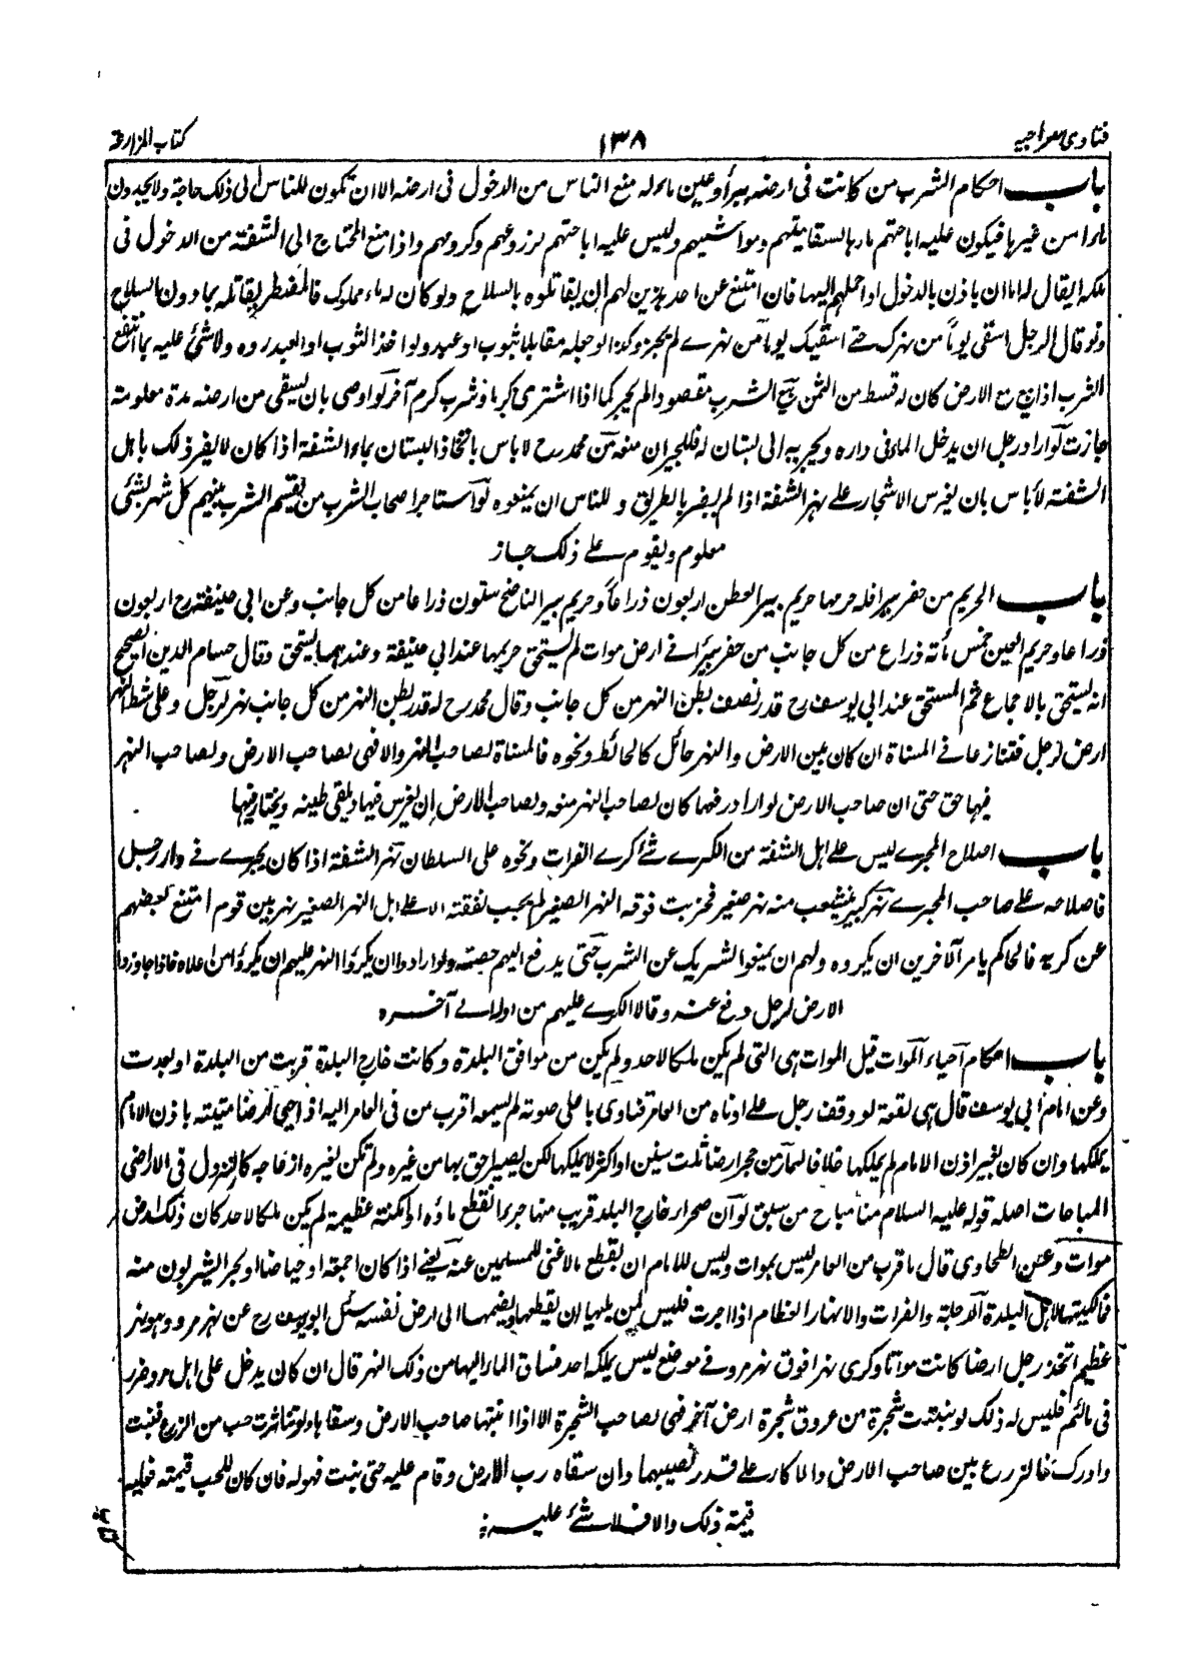 فتاوی سراجیہ
۱۳۸
کتاب المزارعۃ
باب احکام الشرب من کانت فی ارضہ بیر أو عین ماء لہ منع الناس من الدخول فی ارضہ الا ان یکون للناس الی ذلک حاجۃ ولا یجدون
ماء من غیرہا فیکون علیہ اباحتہم ماءہا لسقایتہم ومواشیہم ولیس علیہ اباحتہم لزروعہم وکرومہم واذا منع المحتاج الی الشفۃ من الدخول فی
ملکہ یقال لہ اما ان یاذن بالدخول او احملہم الیہا فان امتنع عن احد ہذین لہم ان یقاتلوہ بالسلاح ولو کان لہ ماء مملوک فالمضطر یقاتلہ بما دون السلاح
ولو قال الرجل اسقنی یوماً من نہرک حتے اسقیک یوماً من نہرے لم یجز وکذا لو جعلہ مقابلا بثوب او عبد ولو اخذ الثوب او العبد ردہ ولا شئ علیہ بما انتفع
الشرب اذا بیع مع الارض کان لہ قسط من الثمن بیع الشرب مقصودا لم یجز کما اذا اشتری کرما وشرب کرم آخر لو اوصی بان یسقی من ارضہ مدۃ معلومۃ
جازت لو اراد رجل ان یدخل الماء فی دارہ ویجریہ الی بستان لہ فللجیران منعہ عن محمد رح لا باس باتخاذ البستان بماء الشفۃ اذا کان لا یضر ذلک باہل
الشفۃ لا باس بان یغرس الاشجار علے نہر الشفۃ اذا لم یضر بالطریق و للناس ان یمنعوہ لو استاجر اصحاب الشرب من یقسم الشرب بینہم کل شہر بشئ
معلوم ویقوم علے ذلک جاز
باب الحریم من حفر بیرا فلہ حرمہا حریم بیر العطن اربعون ذراعاً وحریم بیر الناضح ستون ذراعا من کل جانب وعن ابی حنیفۃ رح اربعون
ذراعا وحریم العین خمس مأتہ ذراع من کل جانب من حفر بیراً فے ارض موات لم یستحق حریمہا عند ابی حنیفۃ وعندہما یستحق وقال حسام الدین الصحیح
انہ یستحق بالاجماع ثم المستحق عند ابی یوسف رح قدر نصف بطن النہر من کل جانب وقال محمد رح لہ قدر بطن النہر من کل جانب نہر لرجل وعلی شط النہر
ارض لرجل فتنازعا فے المسناۃ ان کان بین الارض والنہر حائل کالحائط ونحوہ فالمسناۃ لصاحب النہر والا فہی لصاحب الارض ولصاحب النہر
فیہا حق حتی ان صاحب الارض لو اراد رفعہا کان لصاحب النہر منعہ ولصاحب الارض ان یغرس فیہا ویلقی طینہ ویجتاز فیہا
باب اصلاح المجرے لیس علے اہل الشفۃ من الکرے شئ کرے الفرات ونحوہ علی السلطان نہر الشفۃ اذا کان یجرے فے دار رجل
فاصلاحہ علے صاحب المجرے نہر کبیر یتشعب منہ نہر صغیر فخربت فوقہ النہر الصغیر لم یجب نفقتہ الا علے اہل النہر الصغیر نہر بین قوم امتنع بعضہم
عن کریہ فالحاکم یامر الآخرین ان یکروہ ولہم ان یمنعوا الشریک عن الشرب حتی یدفع الیہم حصتہ ولو ارادوا ان یکروا النہر علیہم ان یکروا من اعلاہ فاذا جاوزوا
الارض لرجل دفع عنہ وقالا الکرے علیہم من اولہ الے آخرہ
باب احکام احیاء الموات قیل الموات ہی التی لم یکن ملکا لاحد ولم یکن من موافق البلدۃ وکانت خارج البلدۃ قربت من البلدۃ او بعدت
وعن امام ابی یوسف قال ہی بقعۃ لو وقف رجل علے ادناہ من العامر فنادی باعلی صوتہ لم یسمعہ اقرب من فی العامر الیہ اذا احیی ارضا میتۃ باذن الامام
یملکہا وان کان بغیر اذن الامام لم یملکہا خلافا لہما من حجر ارضا ثلث سنین او اکثر لا یملکہا لکن یصیر احق بہا من غیرہ ولم تکن لغیرہ ازعاجہ کالنزول فی الاراضی
المباحات اصلہ قولہ علیہ السلام منا مباح من سبق لو ان صحراء خارج البلد قریب منہا جزر انقطع ماؤہ او امکنۃ عظیمۃ لم یکن ملکا لاحد کان ذلک ارض
موات وعن الطحاوی قال ما قرب من العامر لیس بموات ولیس للامام ان یقطع ما لا غنی للمسلمین عنہ یعنے اذا کان اجمۃ او حیاضا او بحر الیشربون منہ
فالمکیتہا لاہل البلدۃ الدجلۃ والفرات والانہار العظام اذا اجرت فلیس لمن یلیہا ان یقطعہا ویضمہا الی ارض نفسہ سئل ابو یوسف رح عن نہر مرو وہو نہر
عظیم اتخذ رجل ارضا کانت مواتا وکری نہرا فوق نہر مرو فے موضع لیس یملکہ احد فساق الماء الیہا من ذلک النہر قال ان کان یدخل علی اہل مرو ضرر
فی مائہم فلیس لہ ذلک لو نبتت شجرۃ من عروق شجرۃ ارض آخر فہی لصاحب الشجرۃ الا اذا انبتہا صاحب الارض وسقاہا ولو تناثرت حب من الزرع فنبت
وادرک فالزرع بین صاحب الارض والاکار علے قدر نصیبہما وان سقاہ رب الارض وقام علیہ حتی نبت فہو لہ فان کان للحب قیمۃ فعلیہ
قیمۃ ذلک والا فلا شئ علیہ